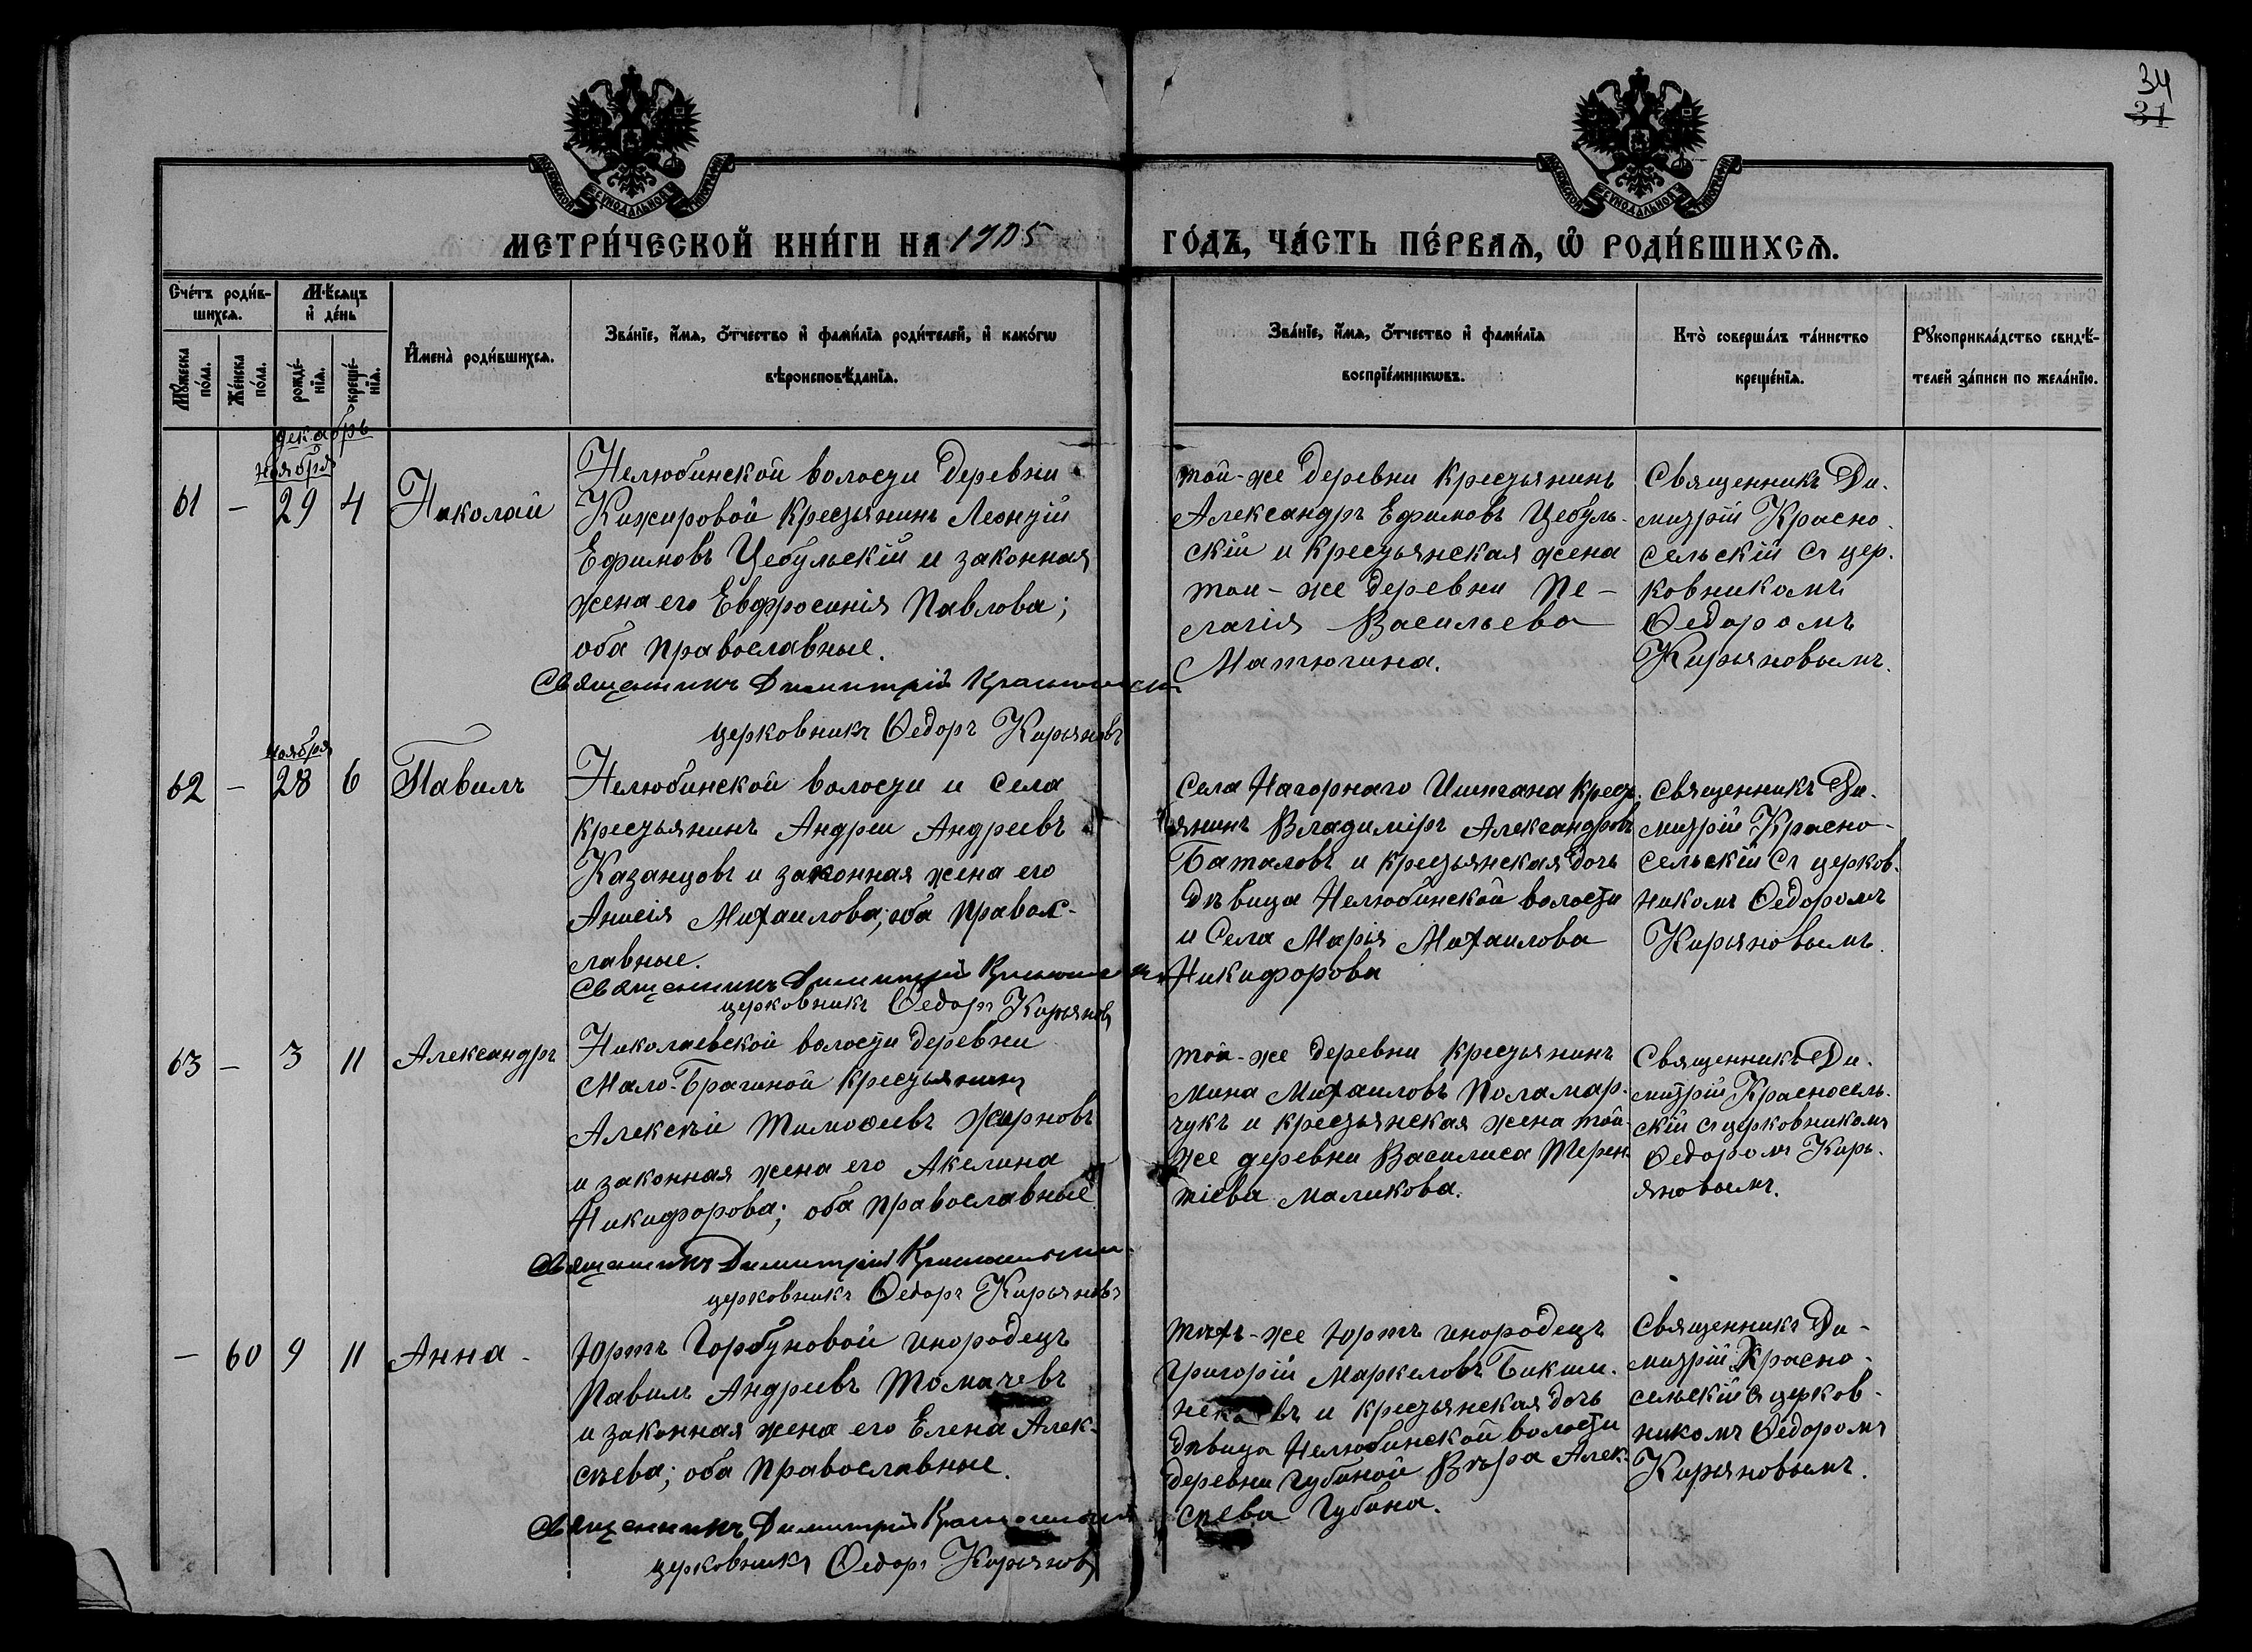 34
31
МОСКОВСКОЙ СУНОДАЛЬНОЙ ТИПОГРАФІИ
МОСКОВСКОЙ СУНОДАЛЬНОЙ ТИПОГРАФІИ
МЕТРИ́ЧЕСКОЙ КНИ́ГИ НА 1905
ГО́ДЪ, ЧА́СТЬ ПЕ́РВАѦ, Ѡ҆ РОДИ́ВШИХСѦ.
Сче́тъ роди́в-
шихсѧ.
Мѣ́сѧцъ
и҆ де́нь
Мꙋ́жеска
по́ла.
Же́нска
по́ла.
рожде́-
нїѧ.
креще́-
нїѧ.
И҆мена̀ роди́вшихсѧ.
Зва́нїе, и҆́мѧ, ѻ҆́тчество и҆ фами́лїѧ роди́телей, и҆ како́гѡ
вѣроисповѣ́данїѧ.
Зва́нїе, и҆́мѧ, ѻ҆́тчество и҆ фами́лїѧ
воспрїе́мникѡвъ.
Кто̀ соверша́лъ та́инство
креще́нїѧ.
Рꙋкоприкла́дство свидѣ́-
телей за́писи по жела́нїю.
декабрь
ноября
61 - 29 4 Николай
Нелюбинской волости деревни
Кижировой крестьянинъ Леонтій
Ефимовъ Цебульскій и законная
жена его Евфросинія Павлова;
оба православные.
Священникъ Димитрій Красносельскій
церковникъ Ѳедоръ Кирьяновъ
той-же деревни крестьянинъ
Александръ Ефимовъ Цебуль-
скій и крестьянская жена
той-же деревни Пе-
лагія Васильева
Матюгина.
Священникъ Ди-
митрій Красно-
сельскій съ цер-
ковникомъ
Ѳедоромъ
Кирьяновымъ.
ноября
62 - 28 6 Павелъ
Нелюбинской волости и села
крестьянинъ Андрей Андреевъ
Казанцовъ и законная жена его
Анисія Михаилова; оба правос-
лавные.
Священникъ Димитрій Красносельскій
церковникъ Ѳедоръ Кирьяновъ
Села Нагорнаго Иштана крест-
янинъ Владиміръ Александровъ
Баталовъ и крестьянская дочь
дѣвица Нелюбинской волости
и Села Марія Михаилова
Никифорова
Священникъ Ди-
митрій Красно-
сельскій съ церков-
никомъ Ѳедоромъ
Кирьяновымъ.
63 - 3 11 Александръ
Николаевской волости деревни
Мало-Брагиной крестьянинъ
Алексѣй Тимоѳеевъ Жирновъ
и законная жена его Акелина
Никифорова; оба православные
Священникъ Димитрій Красносельскій
церковникъ Ѳедоръ Кирьяновъ
той-же деревни крестьянинъ
Мина Михаиловъ Поламар-
чукъ и крестьянская жена той-
же деревни Василиса Терен-
тіева Маликова.
Священникъ Ди-
митрій Красносель-
скій съ церковникомъ
Ѳедоромъ Кирь-
яновымъ.
- 60 9 11 Анна -
Юртъ Горбуновой инородецъ
Павелъ Андреевъ Томачевъ
и законная жена его Елена Алек-
сѣева; оба православные.
Священникъ Димитрій Красносельскій
церковникъ Ѳедоръ Кирьяновъ
тѣхъ-же Юртъ инородецъ
Григорій Маркеловъ
и крестьянская дочь
дѣвица Нелюбинской волости
деревни Губиной Вѣра Алек-
сѣева Губина.
Священникъ Ди-
митрій Красно-
сельскій съ церков-
никомъ Ѳедоромъ
Кирьяновымъ.